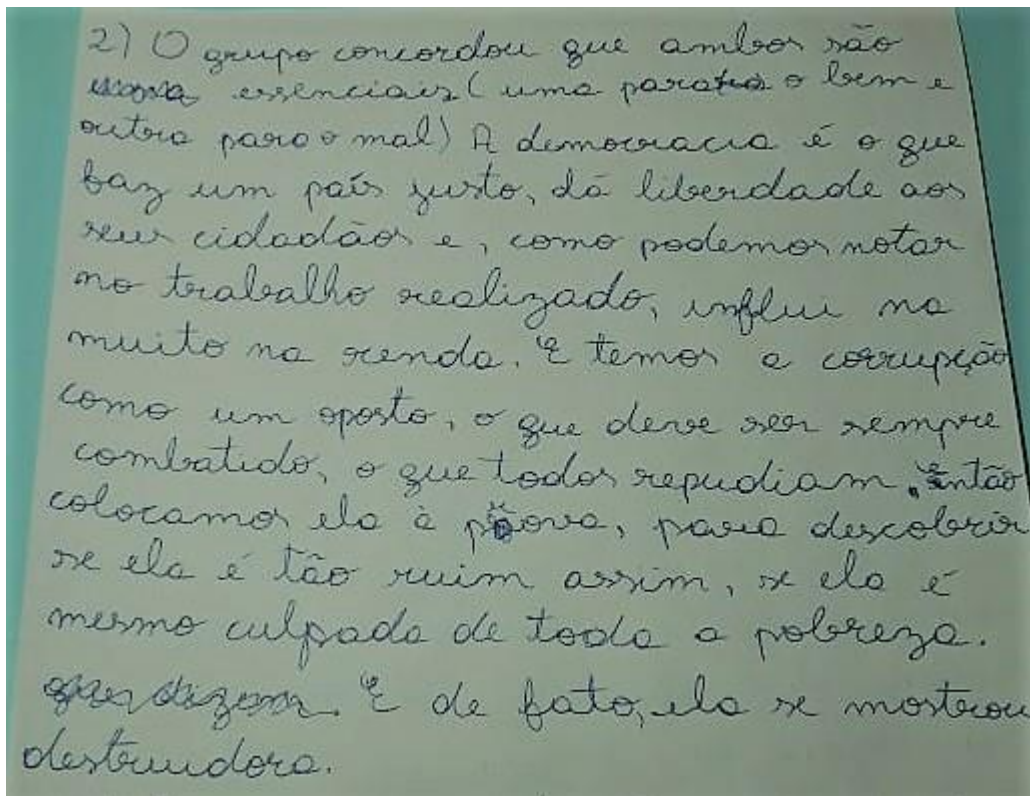 2) O grupo concordou que ambos são
essenciais (uma para o bem e
outra para o mal) A democracia é o que
faz um país justo, dá liberdade aos
seus cidadãos e, como podemos notar
no trabalho realizado, influi na
muito na renda. E temos a corrupção
como um oposto, o que deve ser sempre
combatido, o que todos repudiam. Então
colocamos ela à prova, para descobrir
se ela é tão ruim assim, se ela é
mesmo culpada de toda a pobreza.
que dizem. E de fato, ela se mostrou
destruidora.